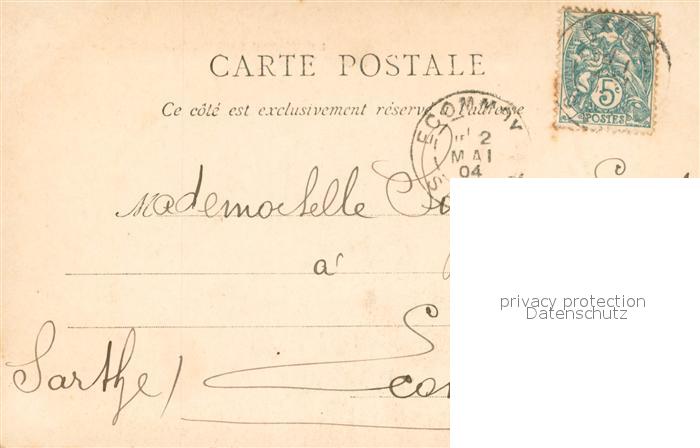 CARTE POSTALE
Ce côté est exclusivement réservé à l'adresse
5c
POSTES
ECOMMOY
2
MAI
04
Mademoiselle
à
Sarthe
privacy protection
Datenschutz